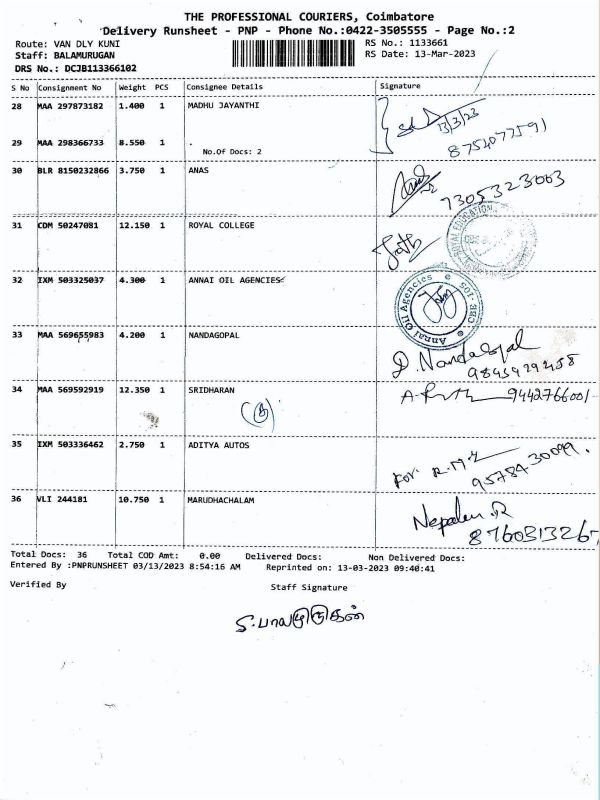 THE PROFESSIONAL COURIERS, Coimbatore
Delivery Runsheet - PNP - Phone No.:0422-3505555 - Page No.:2
Route: VAN DLY KUNI RS No.: 1133661
Staff: BALAMURUGAN RS Date: 13-Mar-2023
DRS No.: DCJB113366102
S No Consignment No Weight PCS Consignee Details Signature
28 MAA 297873182 1.400 1 MADHU JAYANTHI
13/3/23
29 MAA 298366733 8.550 1 . 8754077591
No.Of Docs: 2
30 BLR 8150232866 3.750 1 ANAS
7305323003
31 CDM 50247081 12.150 1 ROYAL COLLEGE
32 IXM 503325037 4.300 1 ANNAI OIL AGENCIES
Annai Oil Agencies
33 MAA 569655983 4.200 1 NANDAGOPAL
D. Nandagopal
34 MAA 569592919 12.350 1 SRIDHARAN 9442766001
35 IXM 503336462 2.750 1 ADITYA AUTOS
For R.M
9578430099.
36 VLI 244181 10.750 1 MARUDHACHALAM
8760313267
Total Docs: 36 Total COD Amt: 0.00 Delivered Docs: Non Delivered Docs:
Entered By :PNPRUNSHEET 03/13/2023 8:54:16 AM Reprinted on: 13-03-2023 09:40:41
Verified By Staff Signature